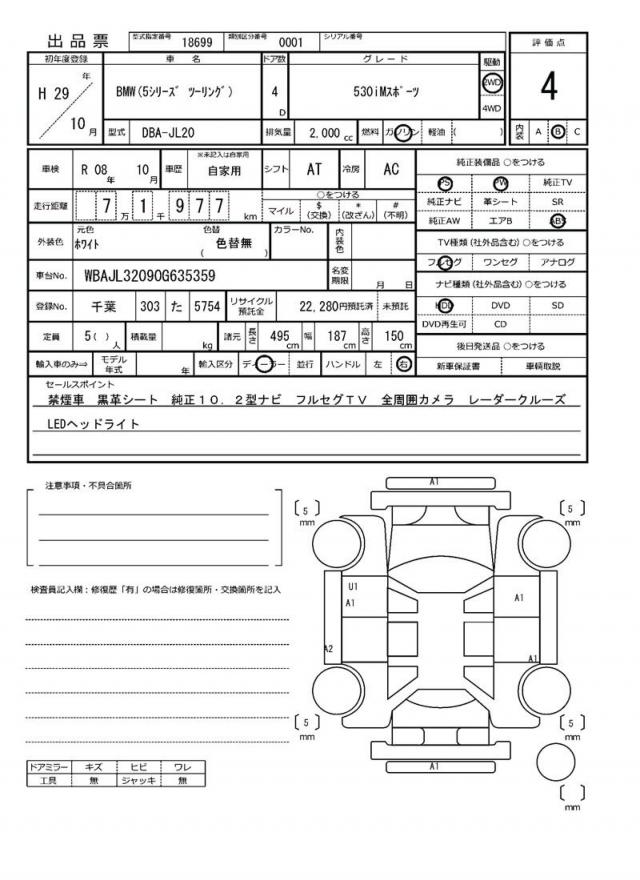 出品票 型式指定番号 18699 類別区分番号 0001 シリアル番号
初年度登録 車名 ドア数 グレード 駆動 評価点
H 29年 10月 BMW(5シリーズ ツーリング) 4D 530iMスポーツ 2WD 4WD 4
型式 DBA-JL20 排気量 2,000cc 燃料 ガソリン 軽油 ( ) 内装 A B C
車検 R 08年 10月 車歴 ※未記入は自家用 自家用 シフト AT 冷房 AC 純正装備品 ○をつける
PS PW 純正TV
走行距離 7万1千977km ○をつける マイル $(交換) *(改ざん) #(不明) 純正ナビ 革シート SR
純正AW エアB ABS
外装色 元色 ホワイト 色替 (色替無) カラーNo. 内装色 TV種類(社外品含む)○をつける
フルセグ ワンセグ アナログ
車台No. WBAJL32090G635359 名変期限 月 日 ナビ種類(社外品含む)○をつける
登録No. 千葉 303 た 5754 リサイクル預託金 22,280円預託済 未預託 HDD DVD SD
DVD再生可 CD
定員 5( )人 積載量 kg 諸元 長さ 495cm 幅 187cm 高さ 150cm 後日発送品 ○をつける
輸入車のみ⇒ モデル年式 年 輸入区分 ディーラー 並行 ハンドル 左 右 新車保証書 車輌取説
セールスポイント
禁煙車 黒革シート 純正10.2型ナビ フルセグTV 全周囲カメラ レーダークルーズ
LEDヘッドライト
注意事項・不具合箇所
A1
5 mm
5 mm
検査員記入欄:修復歴「有」の場合は修復箇所・交換箇所を記入
U1
A1
A1
A2
A1
5 mm
5 mm
A1
mm
ドアミラー キズ ヒビ ワレ
工具 無 ジャッキ 無